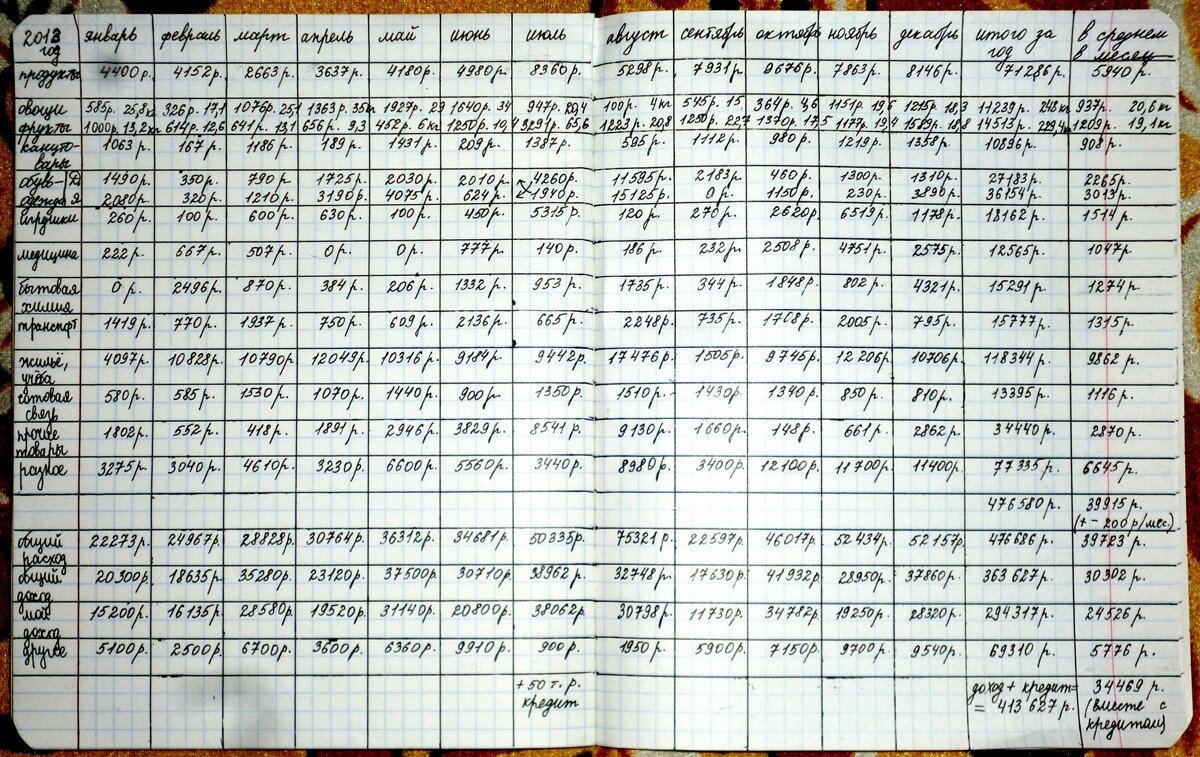 2013 год январь февраль март апрель май июнь июль август сентябрь октябрь ноябрь декабрь итого за год в среднем в месяц
продукты 4400р. 4152р. 2663р. 3637р. 4180р. 4980р. 8360р. 5298р. 7931р. 9676р. 7863р. 8146р. 71286р. 5940р.
овощи 585р. 25,8кг 326р. 17,1 1076р. 25,1 1363р. 35кг 1927р. 29 1640р. 34 947р. 20,4 100р. 4кг 545р. 15 364р. 4,6 1151р. 19,5 1215р. 18,3 11239р. 248кг 937р. 20,6кг
фрукты 1000р. 13,2кг 614р. 12,6 641р. 13,1 656р. 9,3 452р. 6кг 1250р. 19,4 3291р. 65,6 1223р. 20,8 1250р. 22,7 1370р. 17,5 1179р. 19,4 1589р. 18,8 14513р. 229,4кг 1209р. 19,1кг
канцтовары 1063р. 167р. 1186р. 189р. 1431р. 209р. 1387р. 595р. 1112р. 980р. 1219р. 1358р. 10896р. 908р.
обувь– 1490р. 350р. 790р. 1725р. 2030р. 2010р. 4260р. 11595р. 2183р. 460р. 1300р. 1310р. 27183р. 2265р.
одежда Я 2080р. 320р. 1210р. 3190р. 4075р. 624р. 1940р. 15125р. 0р. 1150р. 230р. 3890р. 36154р. 3013р.
260р. 100р. 600р. 630р. 100р. 450р. 5315р. 120р. 270р. 2620р. 6513р. 1178р. 18162р. 1514р.
медицина 222р. 667р. 507р. 0р. 0р. 777р. 140р. 186р. 232р. 2508р. 4751р. 2575р. 12565р. 1047р
бытовая химия 0р. 2496р. 870р. 384р. 206р. 1332р. 953р. 1735р. 344р. 1848р. 802р. 4321р. 15291р. 1274р.
транспорт 1419р. 770р. 1937р. 750р. 609р. 2136р. 665р. 2248р. 735р. 1708р. 2005р. 795р. 15777р. 1315р.
жильё, учёба 4097р. 10828р. 10790р. 12049р. 10316р. 9184р. 9442р. 17476р. 1505р. 9745р. 12206р. 10706р. 118344р. 9862р.
сотовая связь 580р. 585р. 1530р. 1070р. 1440р. 900р. 1350р. 1510р. 1430р. 1340р. 850р. 810р. 13395р. 1116р.
прочие товары 1802р. 552р. 418р. 1891р. 2946р. 3829р. 8541р. 9130р. 1660р. 148р. 661р. 2862р. 34440р. 2870р.
разное 3275р. 3040р. 4610р. 3230р. 6600р. 5560р. 3440р. 8980р. 3400р. 12100р. 11700р. 11400р. 77335р. 6645р.
476580р. 39915р.
(+ – 200р/мес.)
общий расход 22273р. 24967р. 28828р. 30764р. 36312р. 34681р. 50335р. 75321р. 22597р. 46017р. 52434р. 52157р. 476686р. 39723р.
общий доход 20300р. 18635р. 35280р. 23120р. 37500р. 30710р. 38962р. 32748р. 17630р. 41932р. 28950р. 37860р. 363627р. 30302р.
мой доход 15200р. 16135р. 28580р. 19520р. 31140р. 20800р. 38062р. 30798р. 11730р. 34782р. 19250р. 28320р. 294317р. 24526р.
другое 5100р. 2500р. 6700р. 3600р. 6360р. 9910р. 900р. 1950р. 5900р. 7150р. 9700р. 9540р. 69310р. 5776р.
+50 т.р. кредит доход + кредит = = 413627р. 34469р. (вместе с кредитом)